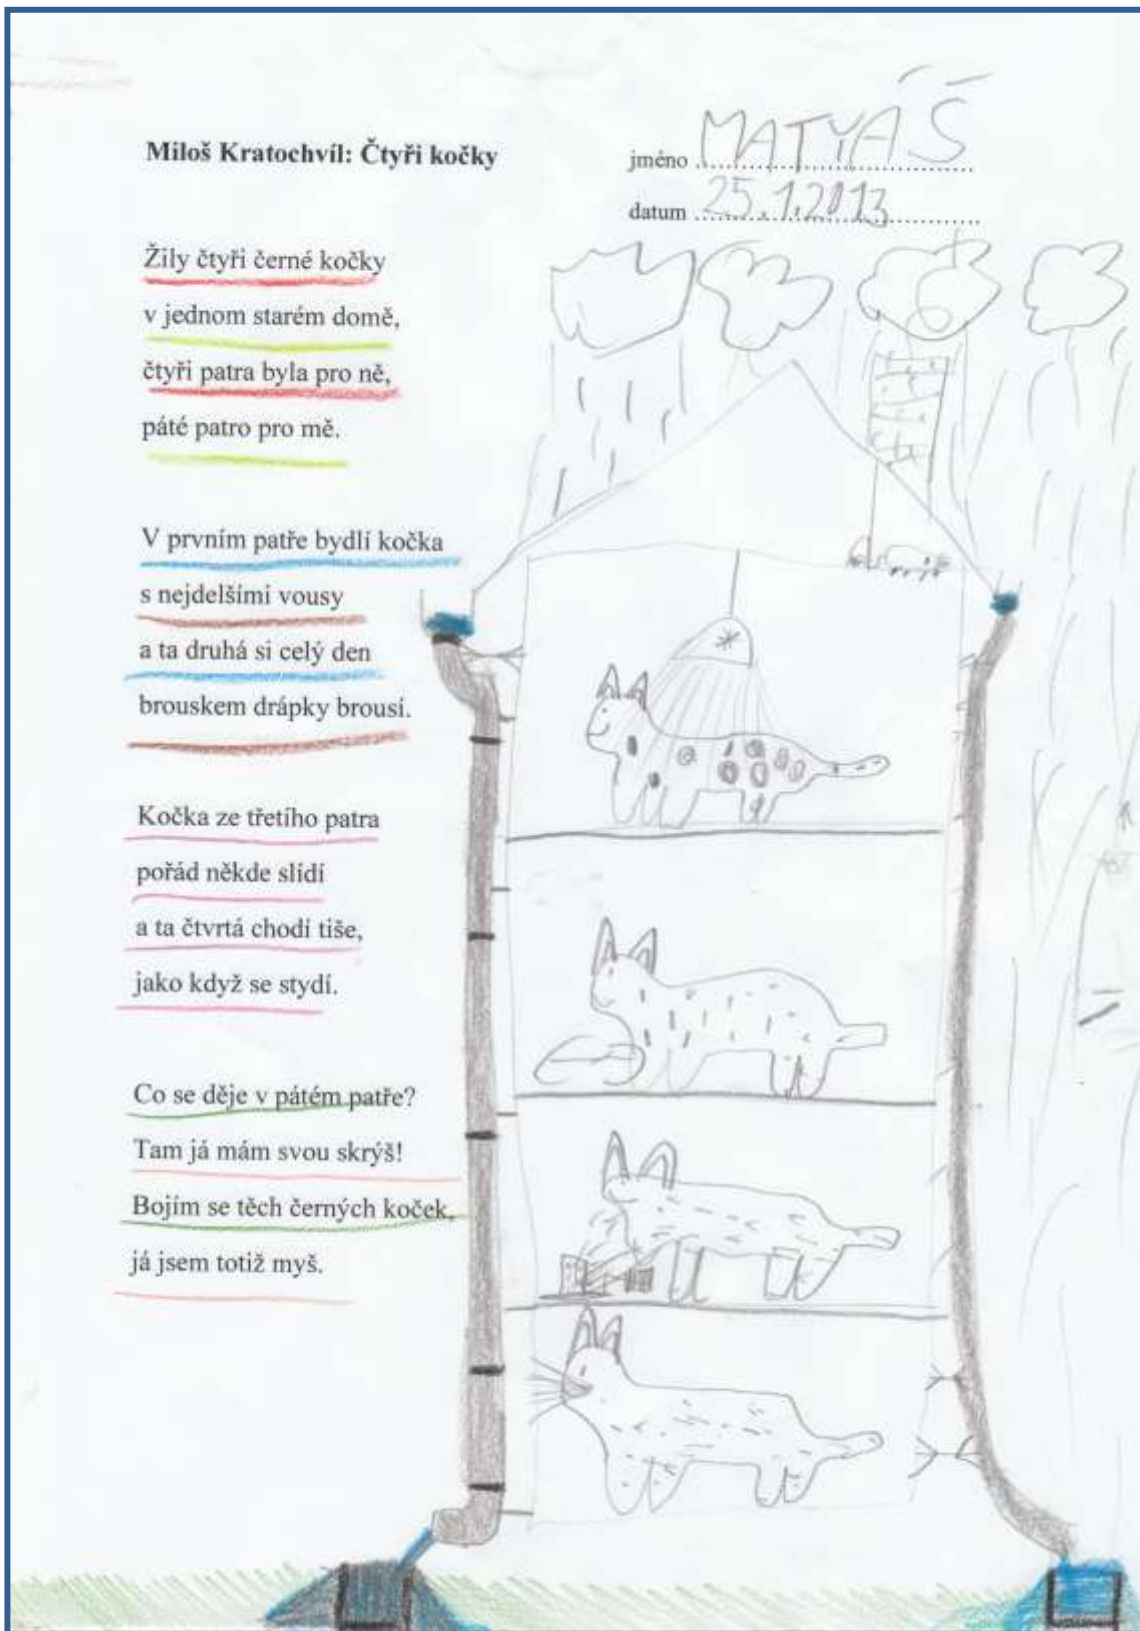 Miloš Kratochvíl: Čtyři kočky
jméno MATYÁŠ
datum 25.1.2013
Žily čtyři černé kočky
v jednom starém domě,
čtyři patra byla pro ně,
páté patro pro mě.
V prvním patře bydlí kočka
s nejdelšími vousy
a ta druhá si celý den
brouskem drápky brousí.
Kočka ze třetího patra
pořád někde slídí
a ta čtvrtá chodí tiše,
jako když se stydí.
Co se děje v pátém patře?
Tam já mám svou skrýš!
Bojím se těch černých koček,
já jsem totiž myš.